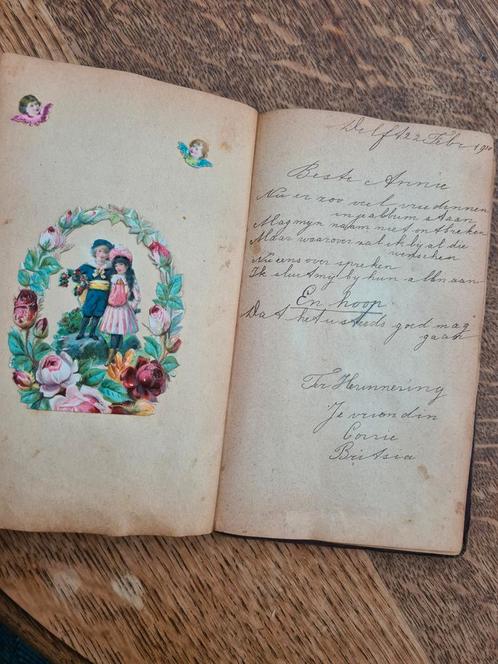 Delft 22 Febr. 19
Beste Annie
Nu er zoo veel vriedinnen
in je album staan
Mag mijn naam niet ontbreken
Maar waarover zal ik bij al die
menschen
Nu eens over spreken
Ik sluit mij bij hun allen aan
En hoop
Dat het u steeds goed mag
gaan
Ter Herinnering
Je vriendin
Corrie